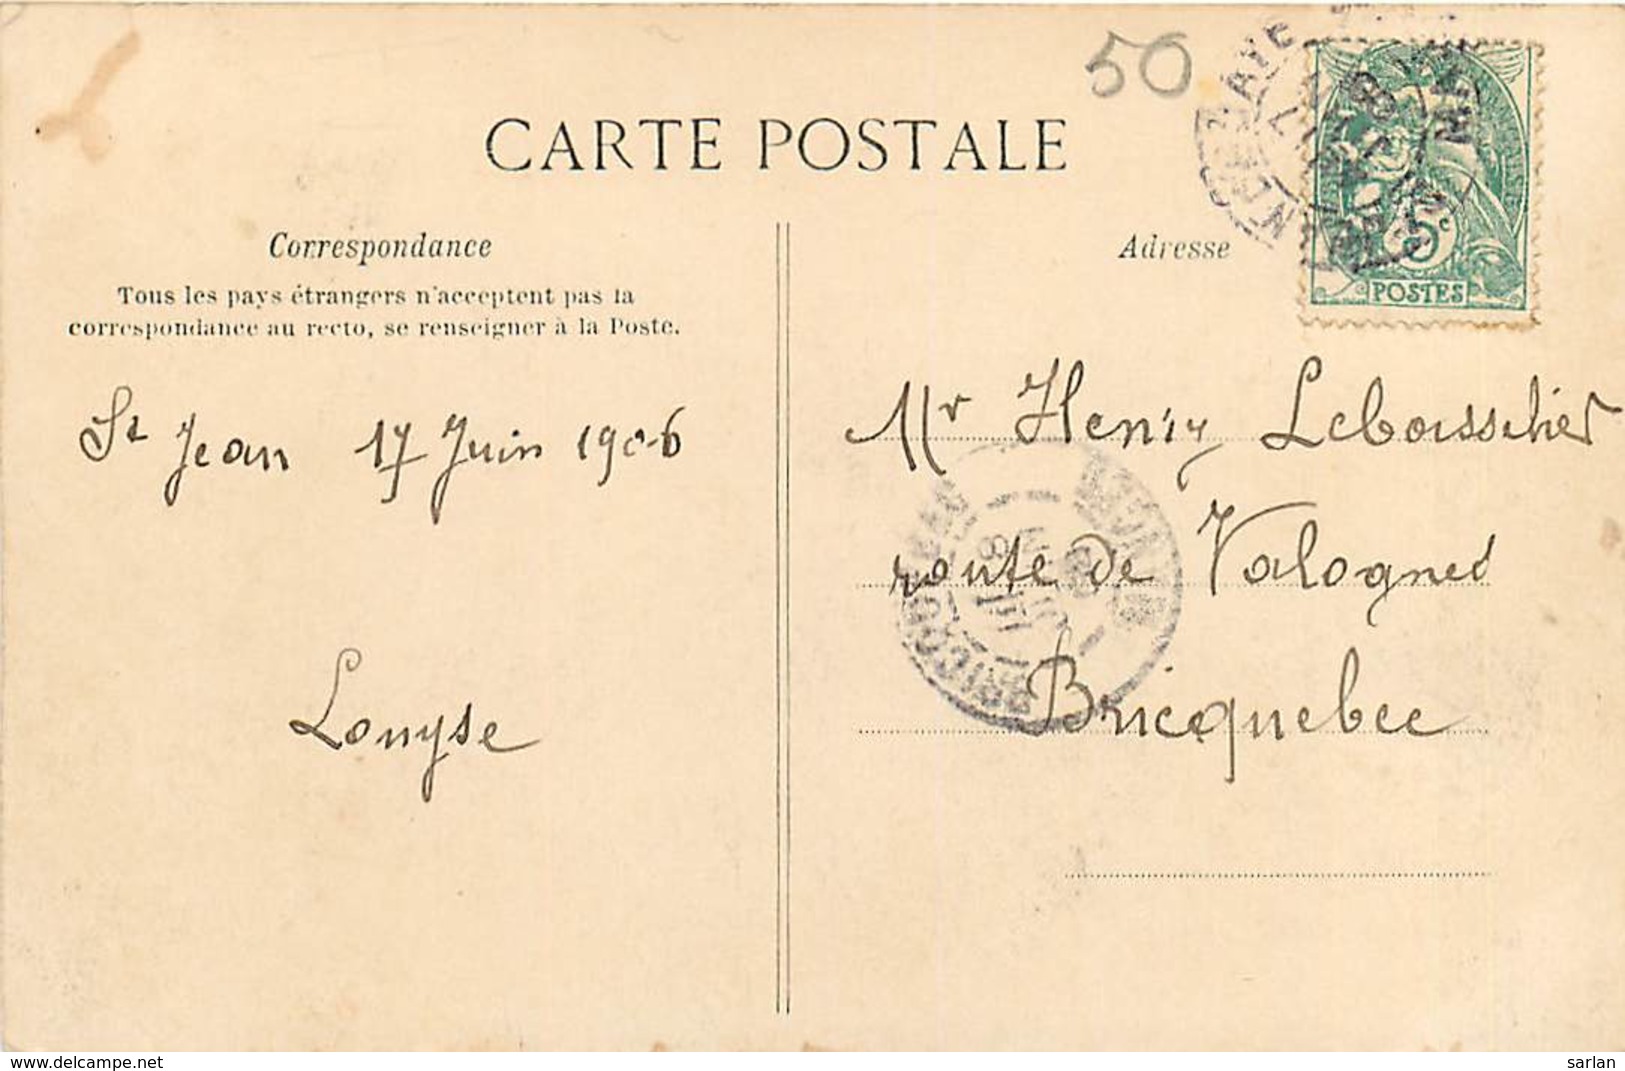 50
CARTE POSTALE
Correspondance
Tous les pays étrangers n'acceptent pas la
correspondance au recto, se renseigner à la Poste.
St Jean 17 Juin 1906
Louyse
Adresse
5c
POSTES
Mr Henry Leboisselier
route de Valognes
Bricquebec
www.delcampe.net
sarlan